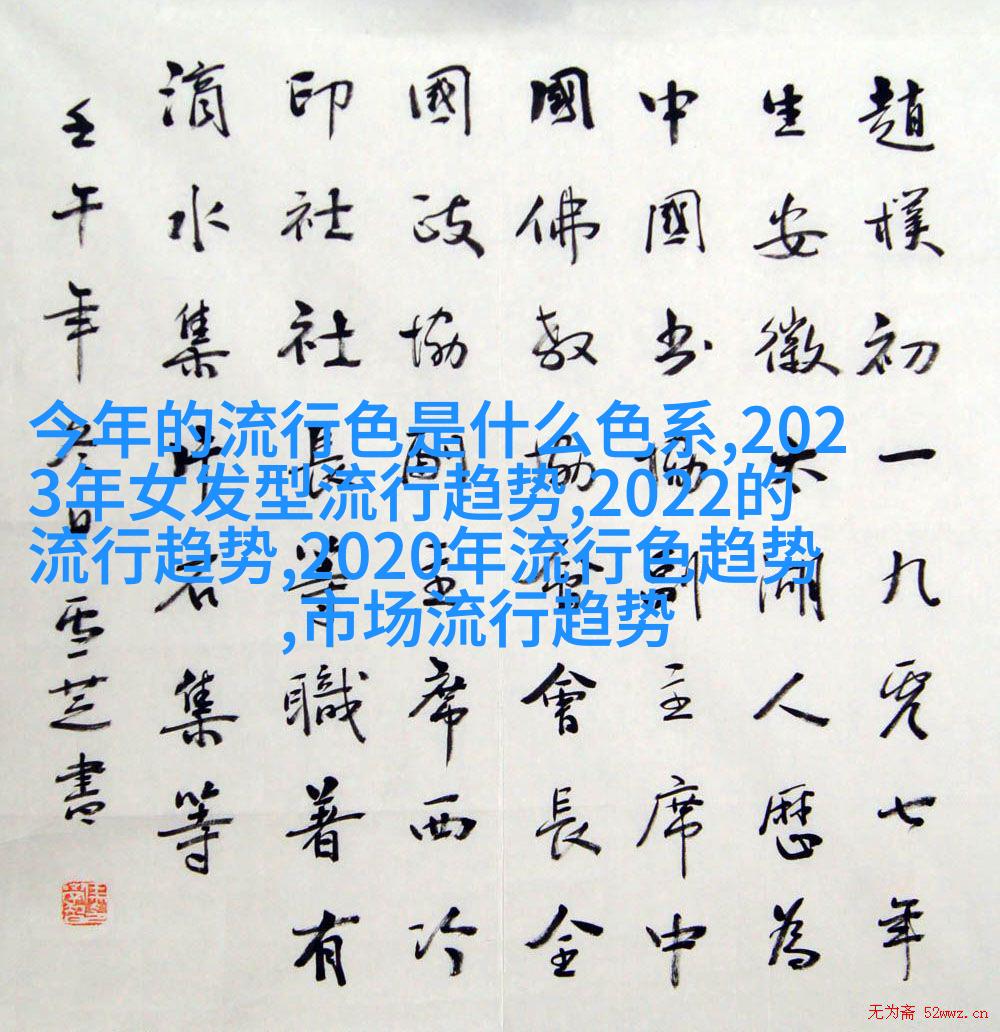 趙樸初一九零七年
生安徽太湖人歷為
中國书協副主席中
國佛教協會會長全
國政協副主席西冷
印社社長等職著有
滴水集片石集等
壬午年冬日雪芝書
今年的流行色是什么色系,202
3年女发型流行趋势,2022的
流行趋势,2020年流行色趋势
,市场流行趋势
无为斋 52wwz.cn